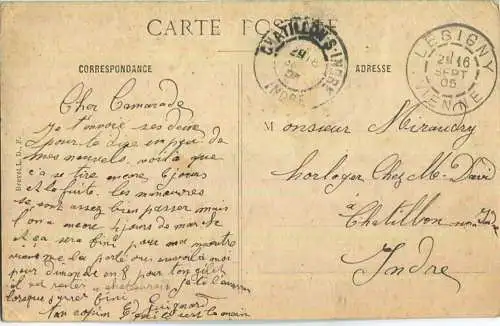 CARTE POSTALE
CHATILLON-S-INDRE
29
05
INDRE
LÉSIGNY
29 16
SEPT
05
VIENNE
CORRESPONDANCE
ADRESSE
Cher Camarade
Je t'envoie ses deux
pour te dire un peu de
mes nouvels. voila que
c'a se tire encore 6 jours
et la fuite. les manœuvres
se sont assez bien passer mais
l'on a encore 4 jours de marche
et ca sera fini pour ma montre
viens me la porté ou envoit la moi
pour dimanche en 8 pour ton qu'il
rester a chateauroux
lorsque j'y serez fini
ton copin
serre la main
M onsieur Miraudry
horloger Chez M. David
à Chatillon sur Indre
Indre